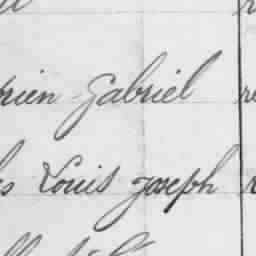 rien Gabriel
es Louis Joseph